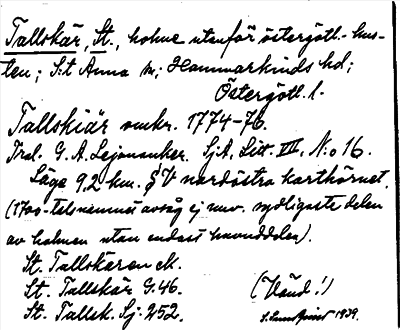 Tallskär, St., holme utanför östergötl.-kus-
ten; S:t Anna sn; Hammarkinds hd;
Östergötl. l.
Tallskiär omkr. 1774–76.
Trol. G. A. Lejonanker. SjA, Litt. VII, N:o 16.
Läge 9,2 km. V nordöstra karthörnet.
(1700-talsnamnet avsåg ej nuv. sydligaste delen
av holmen utan endast huvuddelen).
St. Tallskären eK.
St. Tallskär G. 46.
(Vänd!)
St. Tallsk. Sj. 252.
1939.